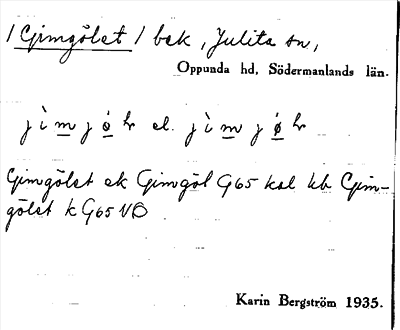 /Gimgölet/ bek, Julita sn,
Oppunda hd, Södermanlands län.
j ì m j ö l. el. j ì m j ø l.
Gimgölet ek Gimgöl G65 ksl hb Gim-
gölet k G65 NB
Karin Bergström 1935.